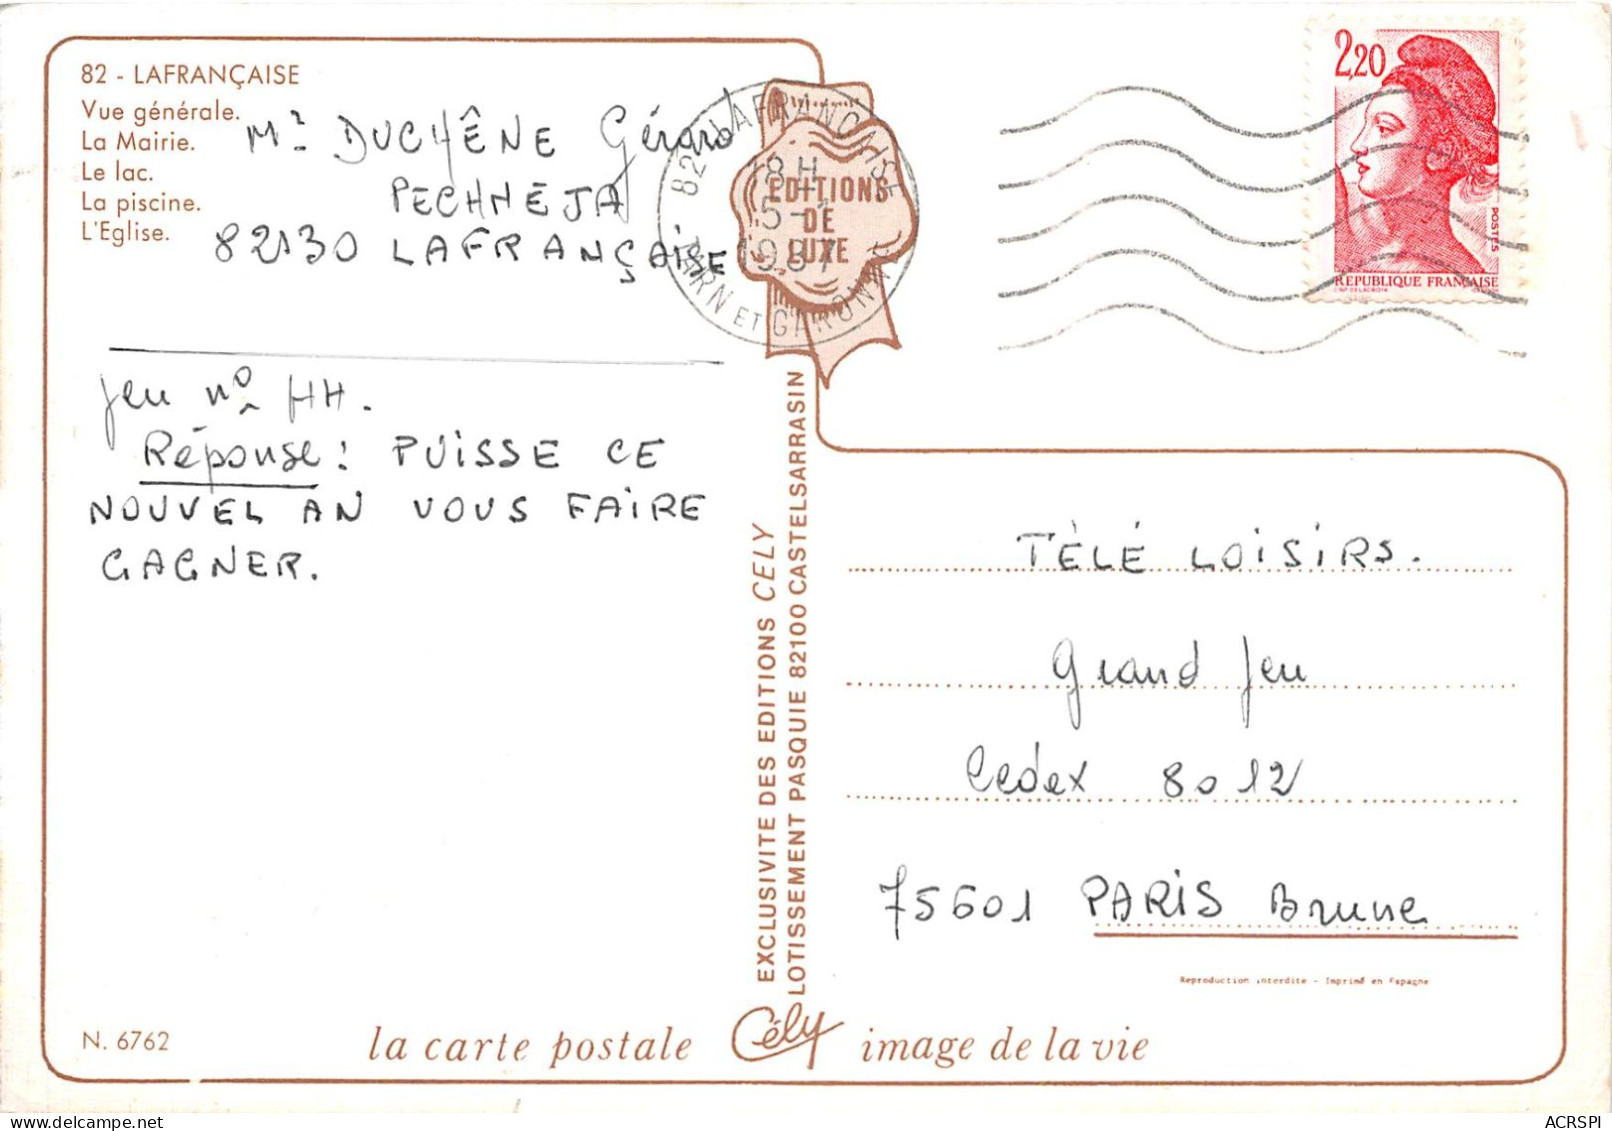 82 - LAFRANÇAISE
Vue générale.
La Mairie.
Le lac.
La piscine.
L'Eglise.
Mr DUCHÊNE Gérard
PECHNEJA
82130 LAFRANÇAISE
82 LAFRANÇAISE
18 H
5 - 1
1987
TARN ET GARONNE
EDITIONS
DE
LUXE
2,20
POSTES
REPUBLIQUE FRANÇAISE
Jeu no HH.
Réponse : PUISSE CE
NOUVEL AN VOUS FAIRE
GAGNER.
EXCLUSIVITE DES EDITIONS CELY
LOTISSEMENT PASQUIE 82100 CASTELSARRASIN
TÈLÉ LOISIRS.
Grand Jeu
Cedex 8012
75601 PARIS Brune
Reproduction interdite - Imprimé en Espagne
N. 6762
la carte postale Cély image de la vie
ACRSPI